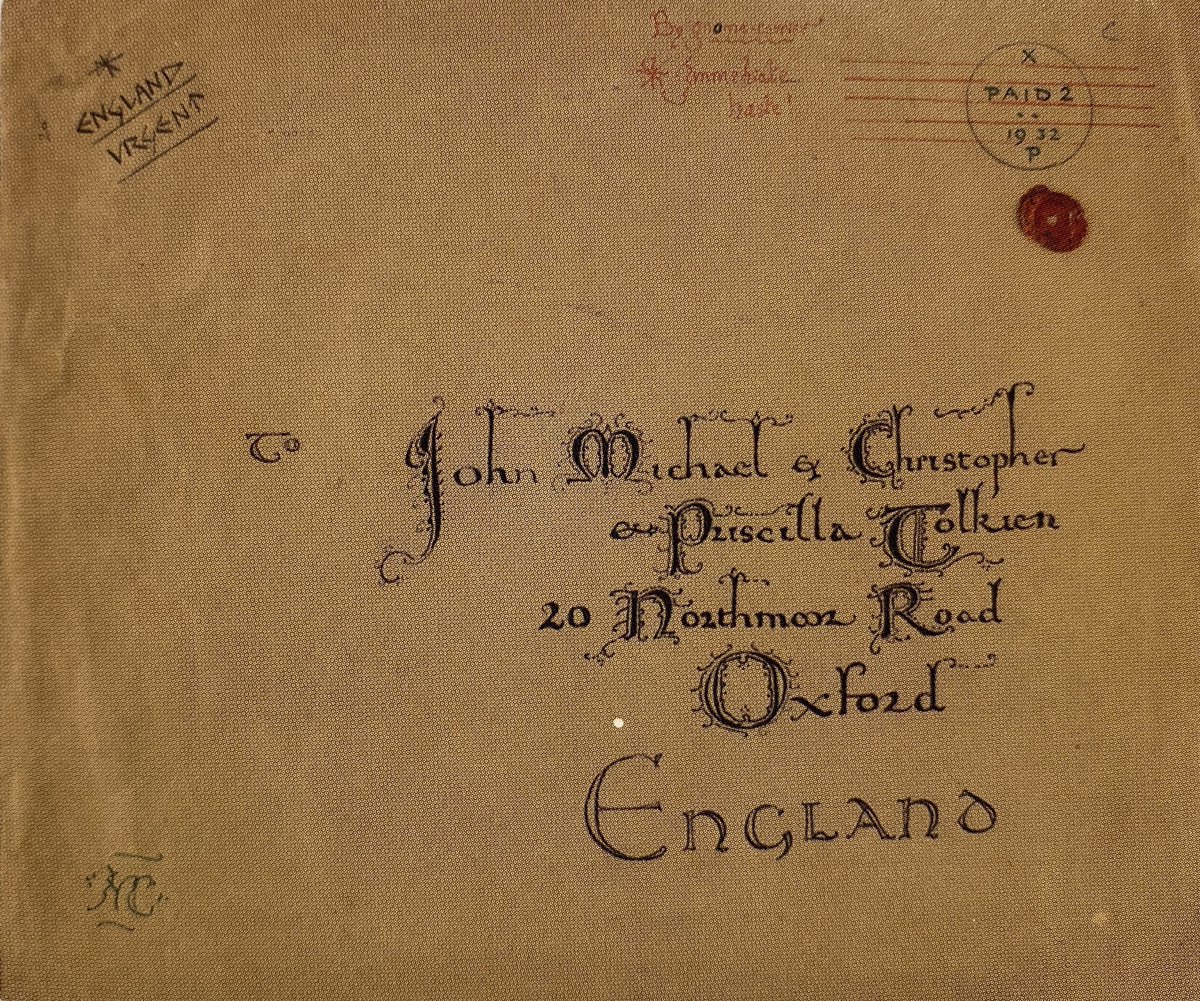 * ENGLAND
URGENT
By gnome-carrier
* immediate
haste!
X
PAID 2
19 32
P
To John Michael & Christopher
& Priscilla Tolkien
20 Northmoor Road
Oxford
ENGLAND